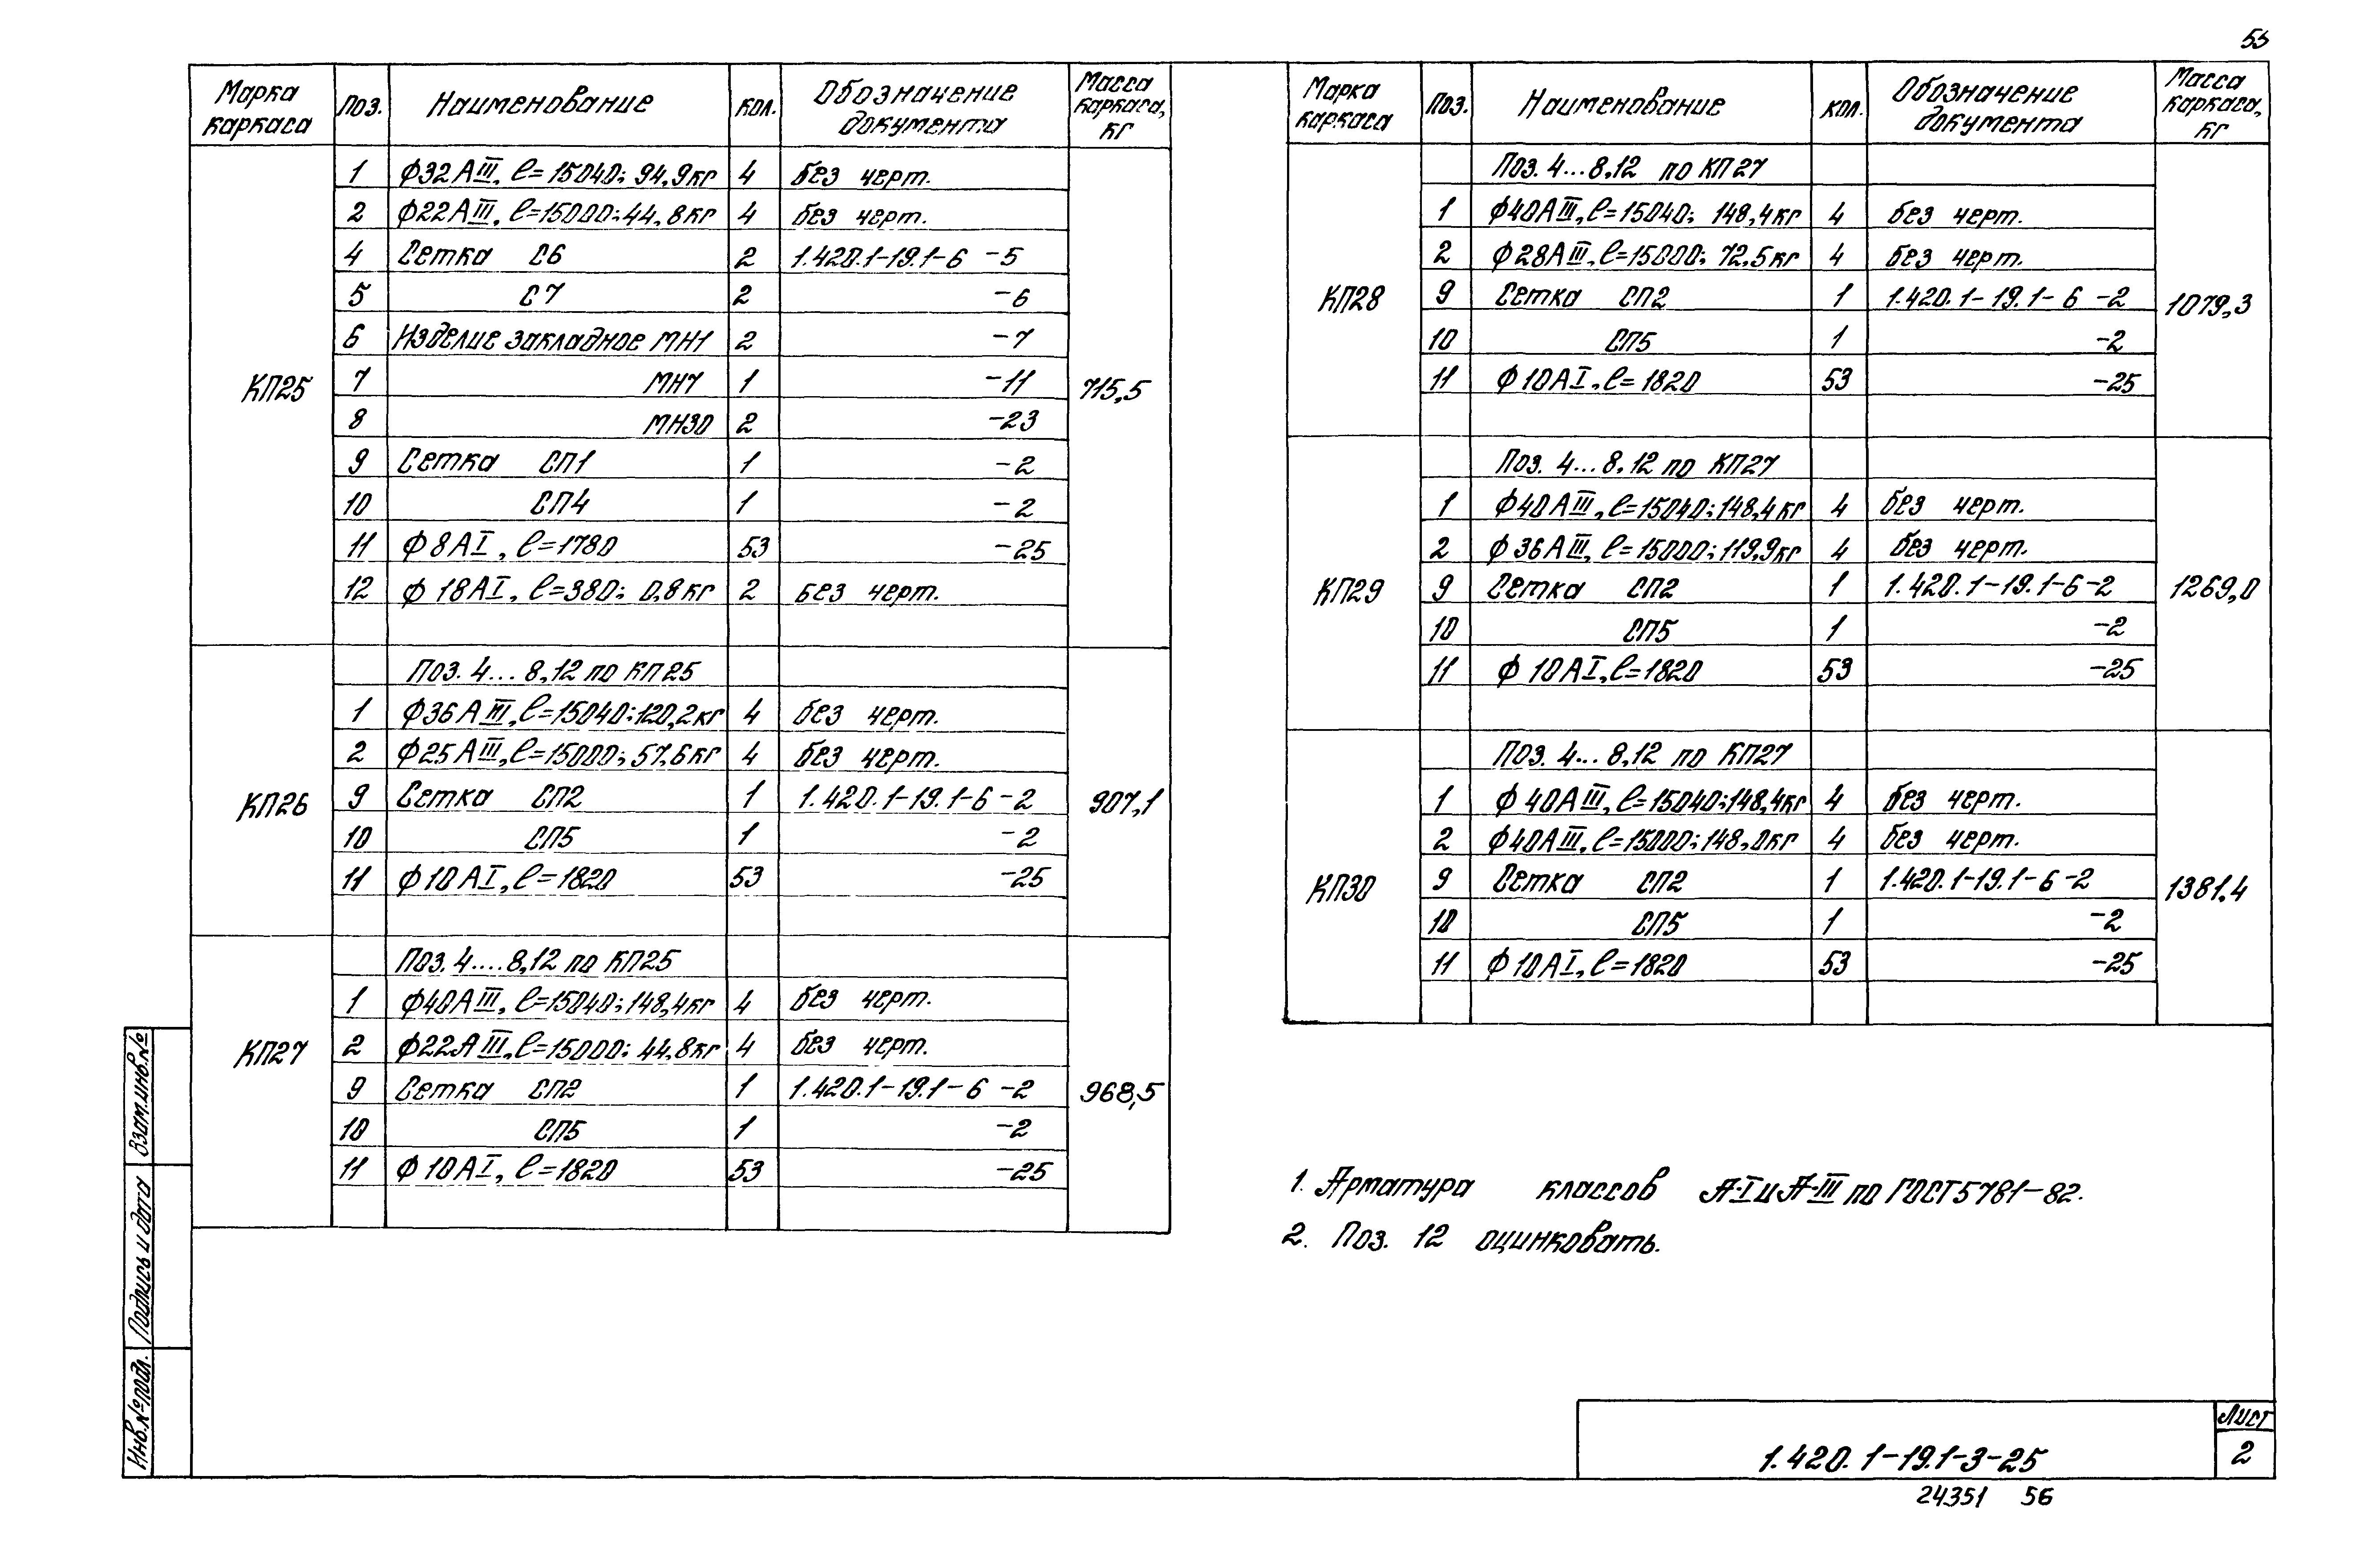 55
Марка каркаса Поз. Наименование Кол. Обозначение документа Масса каркаса, кг
КП25 715,5
1 Ф32АIII, ℓ=15040; 94,9кг 4 без черт.
2 Ф22АIII, ℓ=15000; 44,8кг 4 без черт.
4 Сетка С6 2 1.420.1-19.1-6 -5
5 С7 2 -6
6 Изделие закладное МН1 2 -7
7 МН7 1 -11
8 МН30 2 -23
9 Сетка СП1 1 -2
10 СП4 1 -2
11 Ф8АI, ℓ=1780 53 -25
12 Ф18АI, ℓ=380; 0,8кг 2 без черт.
КП26 907,1
Поз. 4...8,12 по КП25
1 Ф36АIII, ℓ=15040; 120,2кг 4 без черт.
2 Ф25АIII, ℓ=15000; 57,6кг 4 без черт.
9 Сетка СП2 1 1.420.1-19.1-6-2
10 СП5 1 -2
11 Ф10АI, ℓ=1820 53 -25
КП27 968,5
Поз. 4....8,12 по КП25
1 Ф40АIII, ℓ=15040; 148,4кг 4 без черт.
2 Ф22АIII, ℓ=15000; 44,8кг 4 без черт.
9 Сетка СП2 1 1.420.1-19.1-6 -2
10 СП5 1 -2
11 Ф10АI, ℓ=1820 53 -25
Марка каркаса Поз. Наименование Кол. Обозначение документа Масса каркаса, кг
КП28 1079,3
Поз. 4...8,12 по КП27
1 Ф40АIII, ℓ=15040; 148,4кг 4 без черт.
2 Ф28АIII, ℓ=15000; 72,5кг 4 без черт.
9 Сетка СП2 1 1.420.1-19.1-6 -2
10 СП5 1 -2
11 Ф10АI, ℓ=1820 53 -25
КП29 1269,0
Поз. 4...8,12 по КП27
1 Ф40АIII, ℓ=15040; 148,4кг 4 без черт.
2 Ф36АIII, ℓ=15000; 119,9кг 4 без черт.
9 Сетка СП2 1 1.420.1-19.1-6-2
10 СП5 1 -2
11 Ф10АI, ℓ=1820 53 -25
КП30 1381.4
Поз. 4...8,12 по КП27
1 Ф40АIII, ℓ=15040; 148,4кг 4 без черт.
2 Ф40АIII, ℓ=15000; 148,0кг 4 без черт.
9 Сетка СП2 1 1.420.1-19.1-6-2
10 СП5 1 -2
11 Ф10АI, ℓ=1820 53 -25
1. Арматура классов А-I и А-III по ГОСТ 5781-82.
2. Поз. 12 оцинковать.
Взам.инв.№
Подпись и дата
Инв.№подл.
1.420.1-19.1-3-25
Лист
2
24351 56